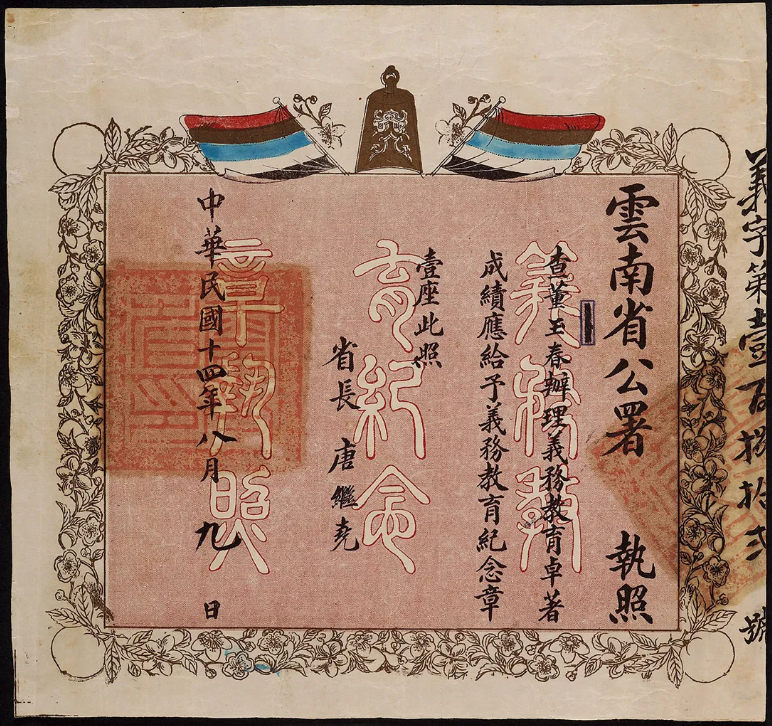 義字第壹百捌拾弍號
雲南省公署 執照
查董玉春辦理義務教育卓著
成績應給予義務教育紀念章
壹座此照
省長 唐繼堯
中華民國十四年八月九日
義務教
育紀念
章執照